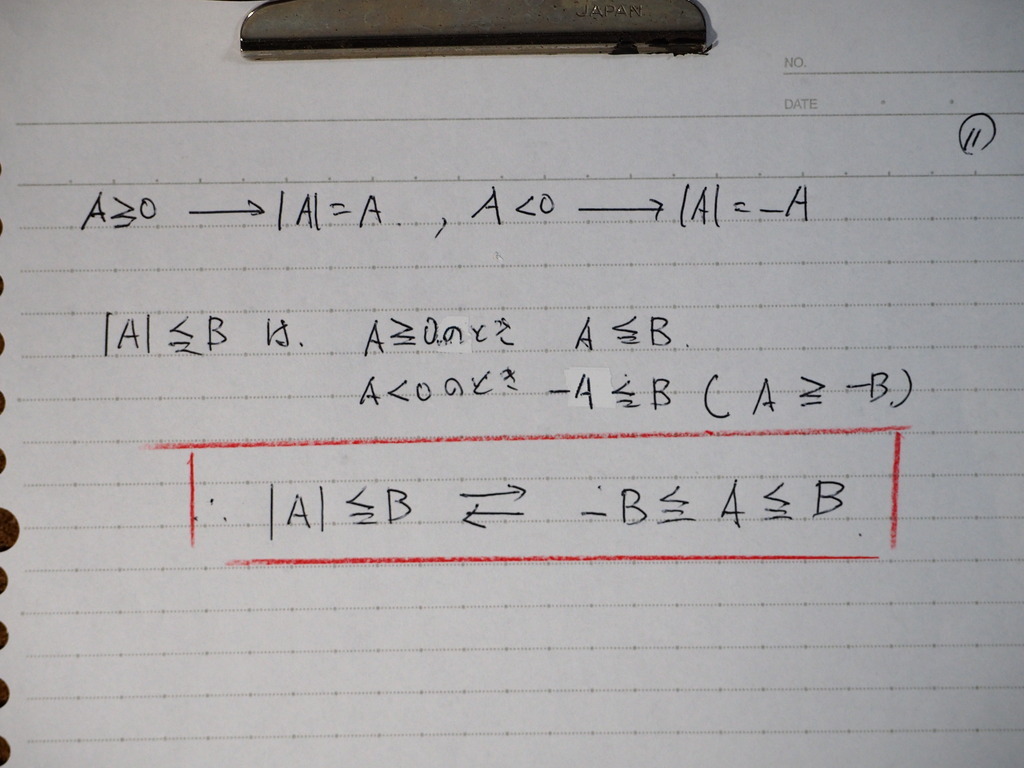 JAPAN
NO.
DATE
⑪
A≧0 ⟶ |A|=A. , A<0 ⟶ |A|=-A
|A|≦B は. A≧0.のとき A≦B.
A<0のとき -A≦B (A≧-B.)
∴ |A|≦B ⇄ -B≦A≦B